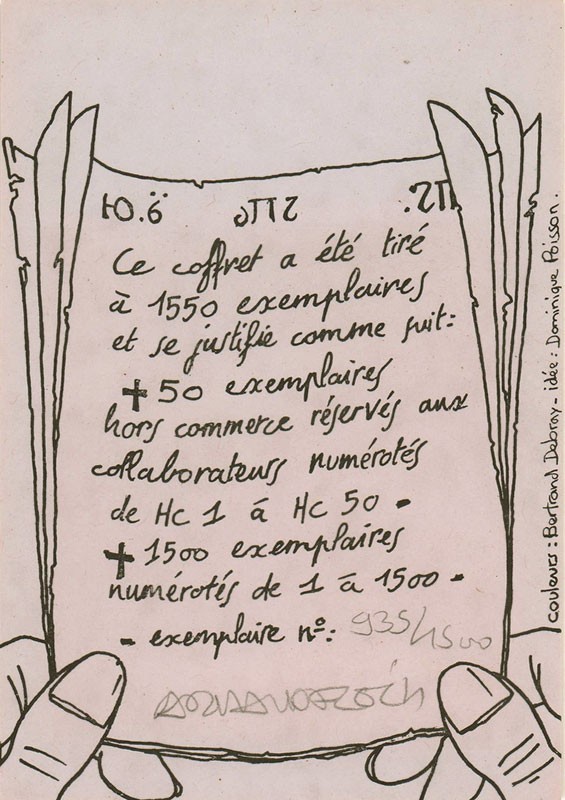 Ce coffret a été tiré
à 1550 exemplaires
et se justifie comme suit:
+ 50 exemplaires
hors commerce réservés aux
collaborateurs numérotés
de HC 1 à HC 50 -
+ 1500 exemplaires
numérotés de 1 à 1500 -
- exemplaire nº: 935/1500
couleurs : Bertrand Debray - idée : Dominique Poisson.